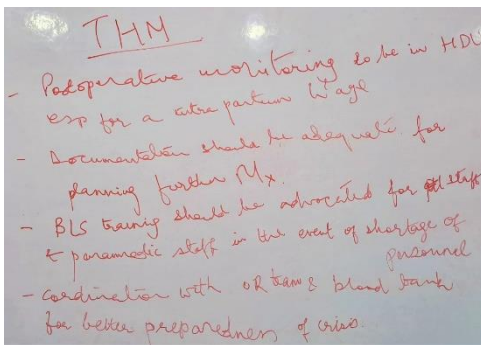 THM
- Postoperative monitoring to be in HDU
esp for a intra partum H'age
- Documentation should be adequate for
planning further Mx.
- BLS training should be advocated for staff
& paramedic staff in the event of shortage of
personnel
- Cordination with OR team & blood bank
for better preparedness of crisis.